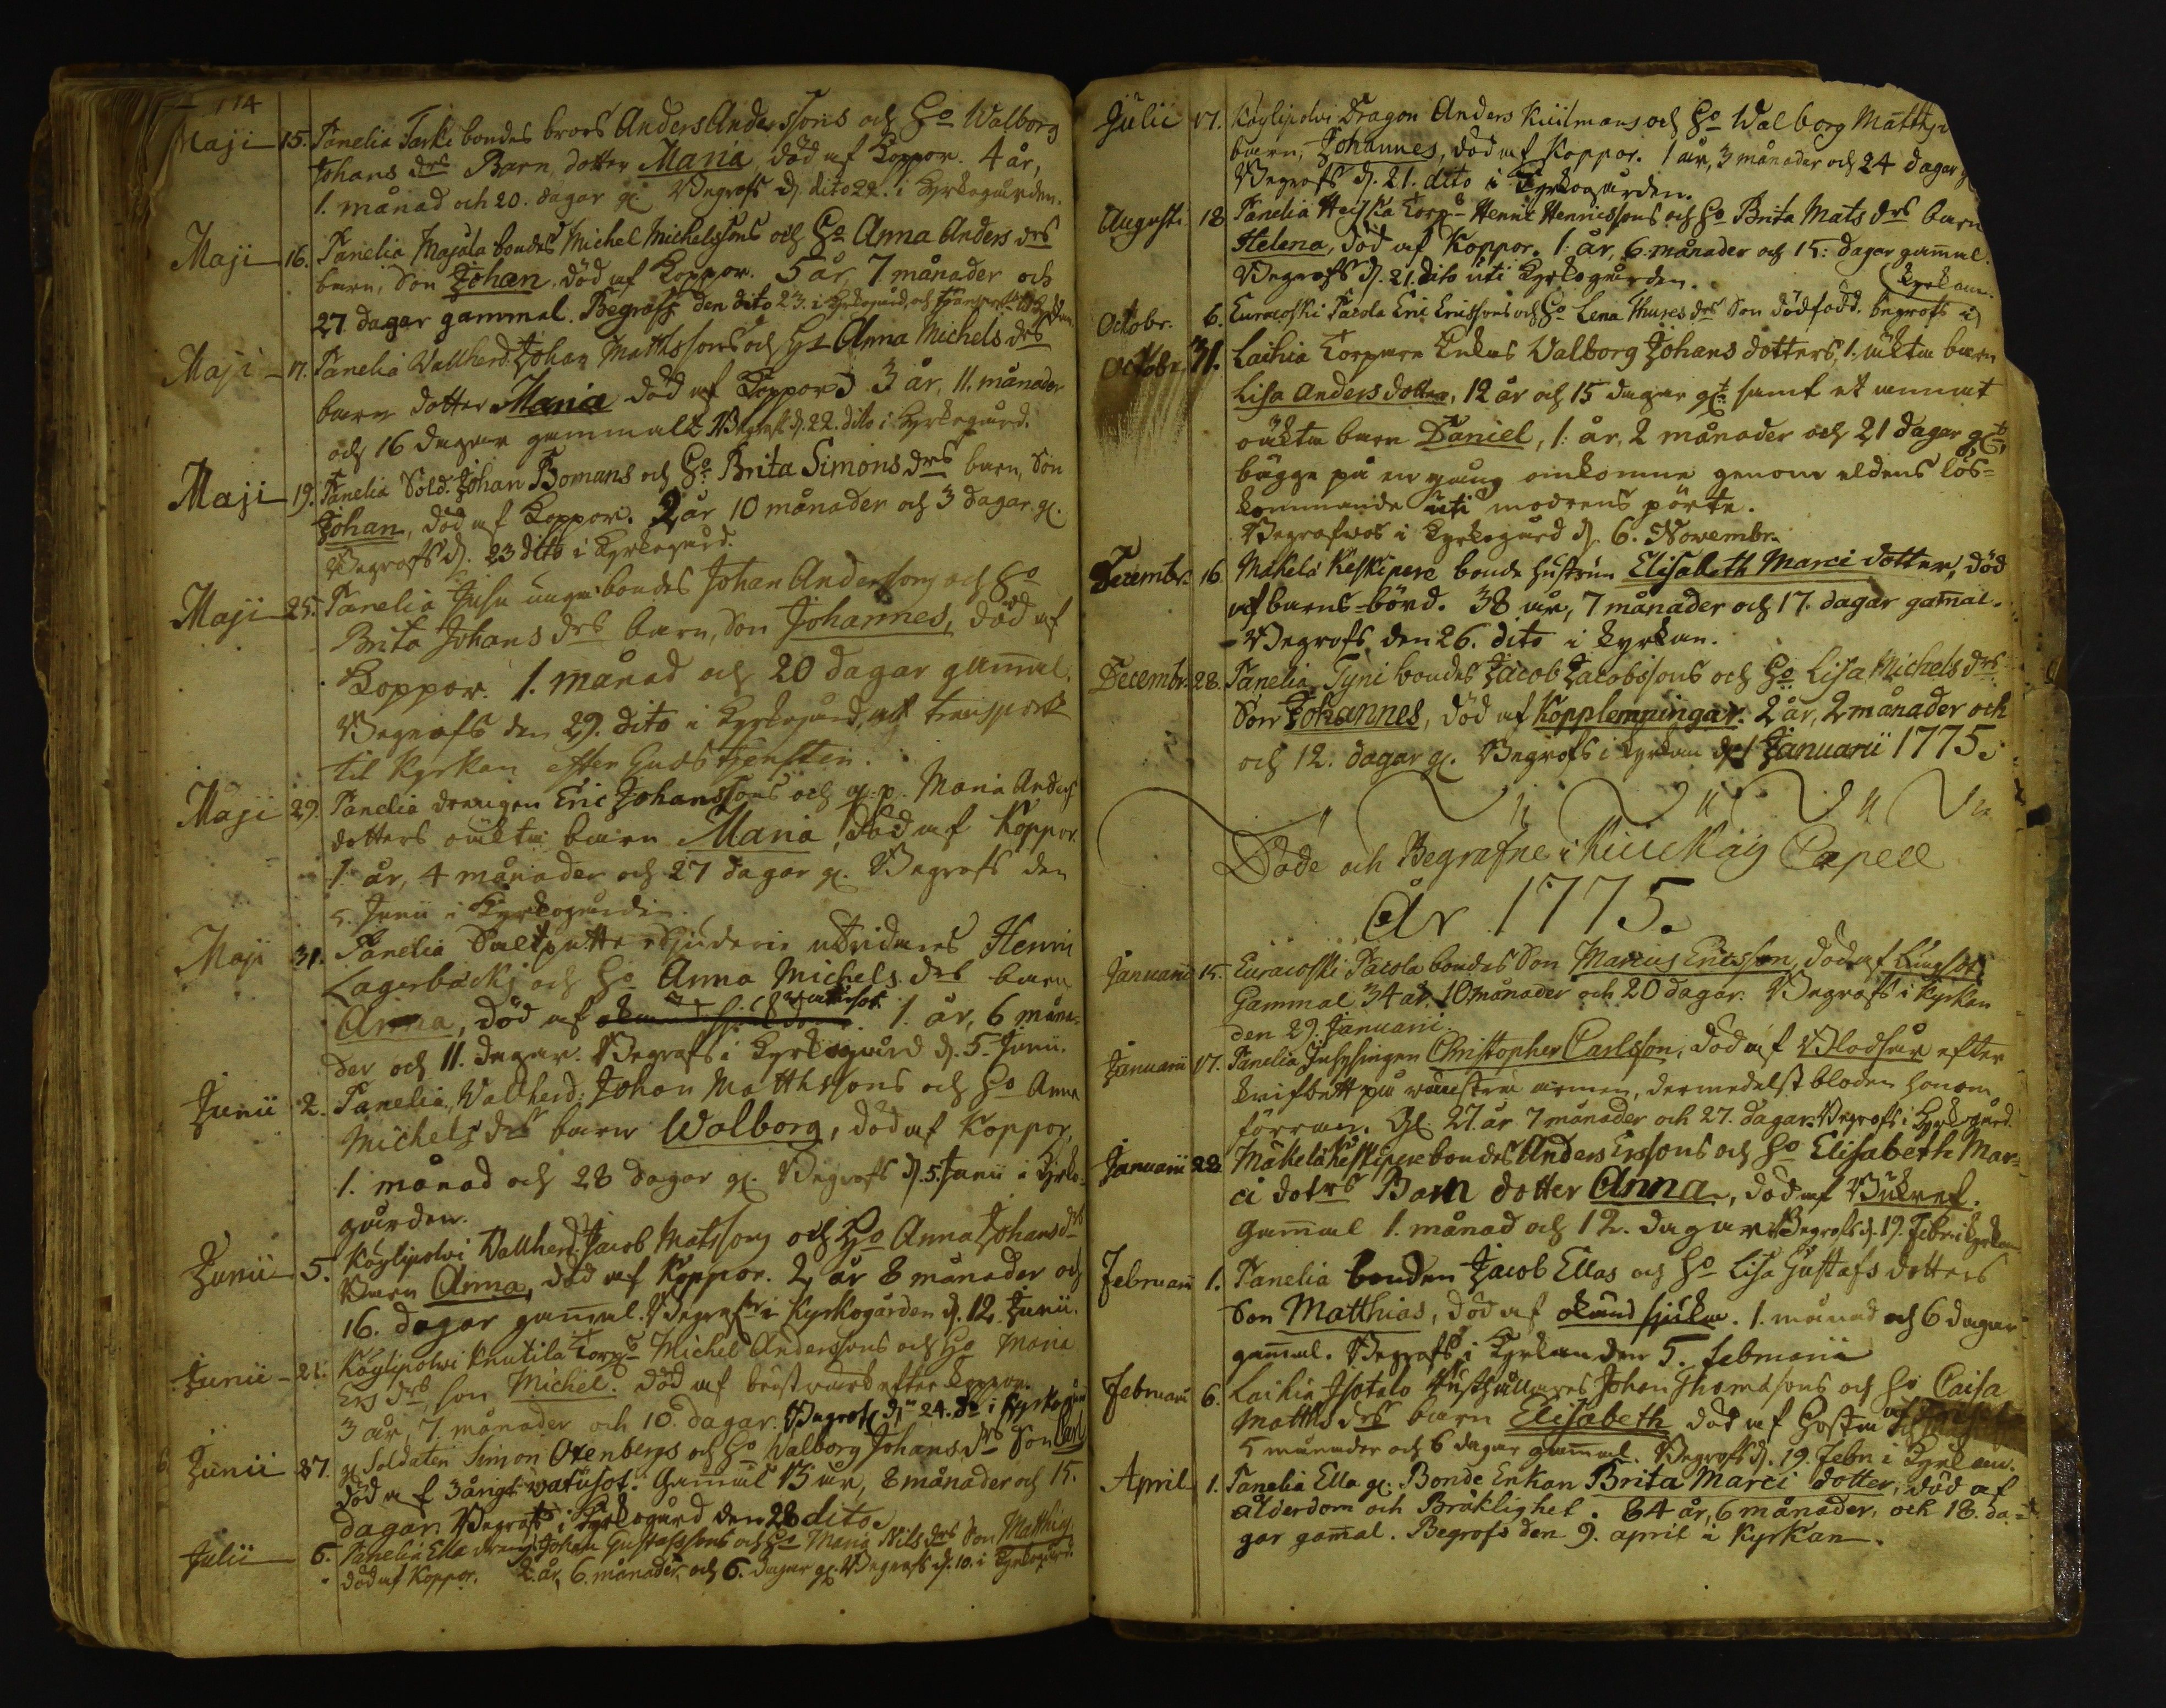 174
Maji 15. Panelia Tarki bondes broers Anders Anderssons och Ho Walborg
Johans drs Barn, dotter Maria, död af Koppor. 4 år,
1. månad och 20. dagar gl. Begrofs d. dito 22. i Kyrkogården.
Maji 16. Panelia Majala bondes Michel Michelssons och Ho Anna Anders drs
barn, Son Johan, död af Koppor. 5 år, 7 månader och
27 dagar gammal. Begrofs den dito 23. i Kyrkogård, och
Maji 17. Panelia Wallherd. Johan Mathssons och Ho Anna Michels drs
barn dotter Maria död af Koppor 3 år, 11. månader
och 16 dagar gammalt Begrofs d. 22. dito i Kyrkogård.
Maji 19. Panelia Sold. Johan Bomans och Ho Brita Simons drs barn, Son
Johan, död af Koppor. 2 år 10 månader och 3 dagar gl.
Begrofs d. 23 dito i Kyrkogård.
Maji 25. Panelia Jusu unga bondes Johan Anderssons och Ho
Brita Johans drs barn, Son Johannes, död af
Koppor. 1. månad och 20 dagar gamal.
Begrofs den 29. dito i Kyrkogård, transport
til Kyrkan efter Gudstjensten.
Maji 29. Panelia drengen Eric Johanssons och q. p. Maria Anders
dotters oäkta barn Maria, död af Koppor.
1. år, 4 månader och 27 dagar gl. Begrofs den
5. Junii i Kyrkogården.
Maji 31. Panelia Saltpetter Sjuderie Henric
Lagerbäcks och Ho Anna Michels drs barn
Anna, död af 1. år, 6 måna-
der och 11. dagar. Begrofs i Kyrkogård d. 5. Junii.
Junii 2. Panelia, Wallherd: Johan Matthssons och Ho Anna
Michels drs barn Walborg, död af Koppor,
1. månad och 28 dagar gl. Begrofs d. 5. Junii i Kyrko-
gården.
Junii 5. Köylipolvi Wallherd: Jacob Matssons och Ho Anna Johans drs
Barn Anna, död af Koppor. 2 år 8 månader och
16. dagar gamal. Begrofs i Kyrkogården d. 12. Junii.
Junii 21. Köylipolvi Knutila Torp: Michel Anderssons och Ho Maria
Ers drs son Michel. död af bröstwärk efter koppor.
3 år, 7. månader och 10. dagar. Begrofs dn 24. do i Kyrkogård
Junii 27. gl. Soldaten Simon Oxenbergs och Ho Walborg Johans drs Son Carl
död af 3 årigt watusot. Gammal 13 år, 8 månader och 15.
dagar. Begrofs i Kyrkogård den 28 dito.
Julii 6. Panelia Ella dreng: Johan Gustafssons och Ho Maria Nils drs Son Matthias
död af Koppor. 2. år, 6. månader, och 6. dagar gl. Begrofs d. 10. i Kyrkogård.
Julii 17. Köylipolvi Dragon Anders Kiilmans och Ho Walborg Matths
barn, Johannes, död af Koppor. 1 år, 3 månader och 24 dagar
Begrofs d. 21. dito i Kyrkogården.
Augusti 18 Panelia Heiska Torp:s Henric Henricssons och Ho Brita Mats drs barn
Helena, död af Koppor. 1. år, 6. månader och 15. dagar gamal.
Begrofs d. 21. dito uti Kyrkogården.
Octobr. 6. Euracoski Pacola Eric Ericssons och Ho Lena Thures drs Son dödfödd. begrofs i Kyrkan.
Octobr. 31. Laihia Torpare Enkas Walborg Johans dotters, 1. äkta barn
Lisa Anders dotter, 12 år och 15 dagar glt samt et annat
oäkta barn Daniel, 1. år, 2 månader och 21 dagar glt
bägge på en gång omkomne genom eldens lös-
kommande uti modrens pörte.
Begrafwos i Kyrkogård d. 6. Novembr.
Decembr. 16 Mäkelä Keskipere bonde hustrun Elisabeth Marci dotter, död
af barns-börd. 38 år, 7 månader och 17. dagar gamal.
Begrofs den 26. dito i kyrkan.
Decembr. 28. Panelia Tyni bondes Jacob Jacobssons och Ho Lisa Michels drs
Son Johannes, död af Kopplempingar. 2 år, 2 månader och
och 12. dagar gl. Begrofs i Kyrkan d. 1 Januarii 1775.
Döde och Begrafne i Kiuckäis Capell
År 1775.
Januarii 15. Euracoski Pacola bondes Son Marcus Ericsson, död af Lungsot
Gammal 34 år. 10 månader och 20 dagar. Begrofs i Kyrkan
den 29. Januarii.
Januarii 17. Panelia Inhysingen Christopher Carlsson, död af Blodsår efter
knifhugg på wänstra armen, dermedelst bloden honom
förrann. Gl. 27. år 7 månader och 27. dagar. Begrofs i Kyrkogård.
Januarii 28. Mäkelä Keskipere bondes Anders Erssons och Ho Elisabeth Mar-
ci dotrs Barn dotter Anna, död af Bukref.
Gammal 1. månad och 12. dagar Begrofs d. 19. Febr. i Kyrkan.
Februarii 1. Panelia bonden Jacob Ellas och Ho Lisa Gustafs dotters
Son Matthias, död af okänd sjukd. 1. månad och 6 dagar
gamal. Begrofs i Kyrkan den 5. februarii
Februarii 6. Laihia Isotalo Rusthållares Johan Thomassons och Ho Caisa
Matths drs barn Elisabeth död af Hosta
5 månader och 6 dagar gammal. Begrofs d. 19. Febr. i Kyrkan.
April 1. Panelia Ella gl. Bonde Enkan Brita Marci dotter, död af
ålderdom och Bräklighet. 84 år, 6 månader, och 18. da-
gar gamal. Begrofs den 9. april i Kyrkan.